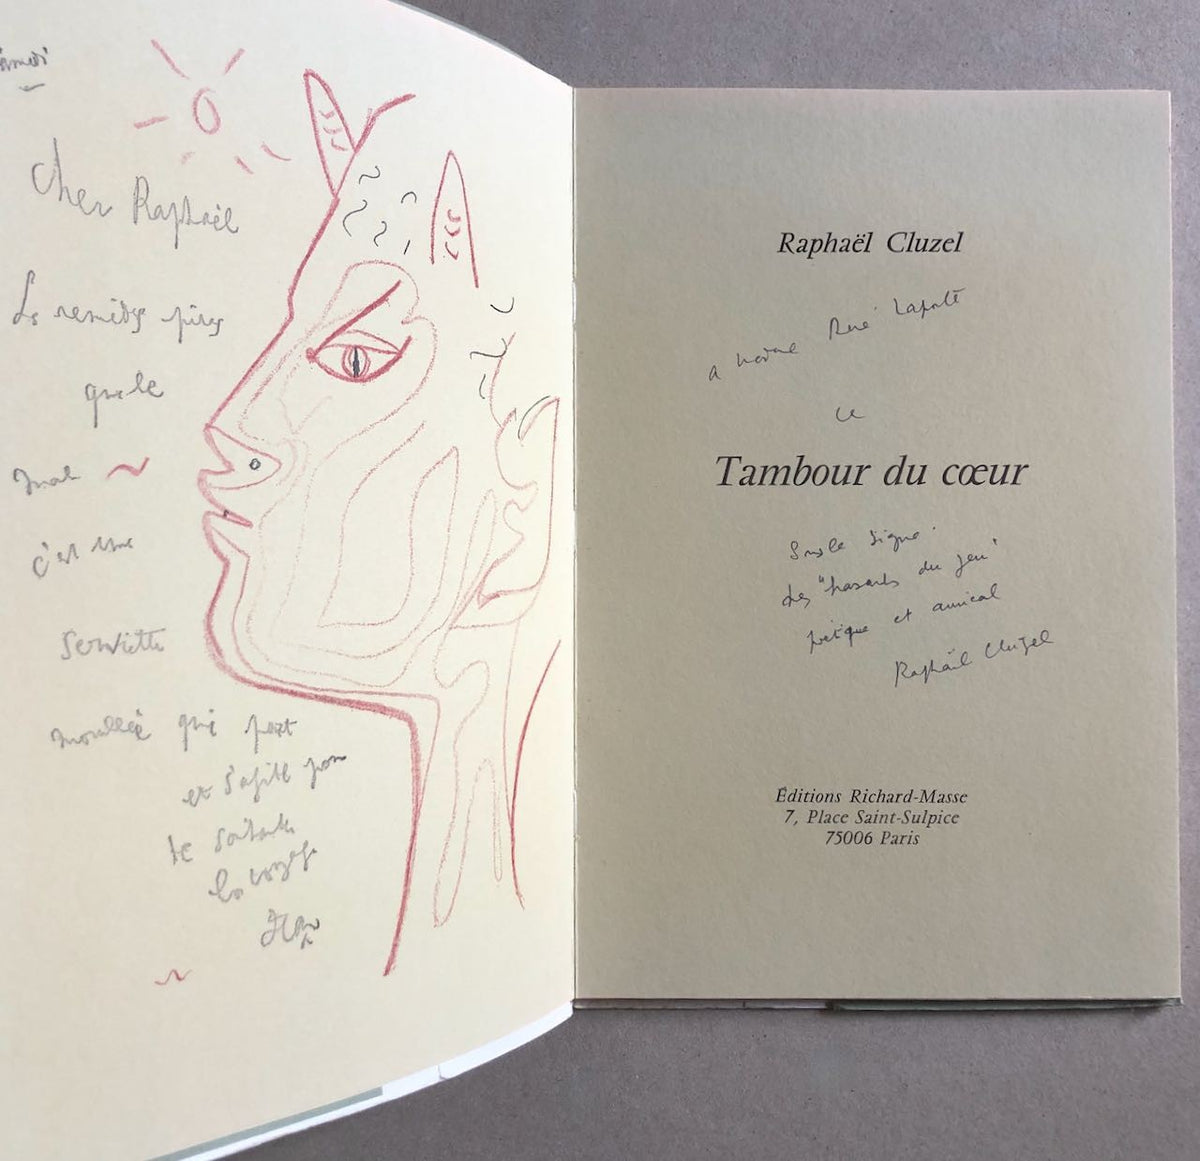 Cher Raphaël
Les remèdes pires
que le
mal
c'est une
serviette
mouillée qui part
et s'agite pour
te souhaiter
bon voyage
Jean
Raphaël Cluzel
a Madame René Laporte
ce
Tambour du cœur
Sous le signe
des "hasards du jeu"
poétique et amical
Raphaël Cluzel
Éditions Richard-Masse
7, Place Saint-Sulpice
75006 Paris